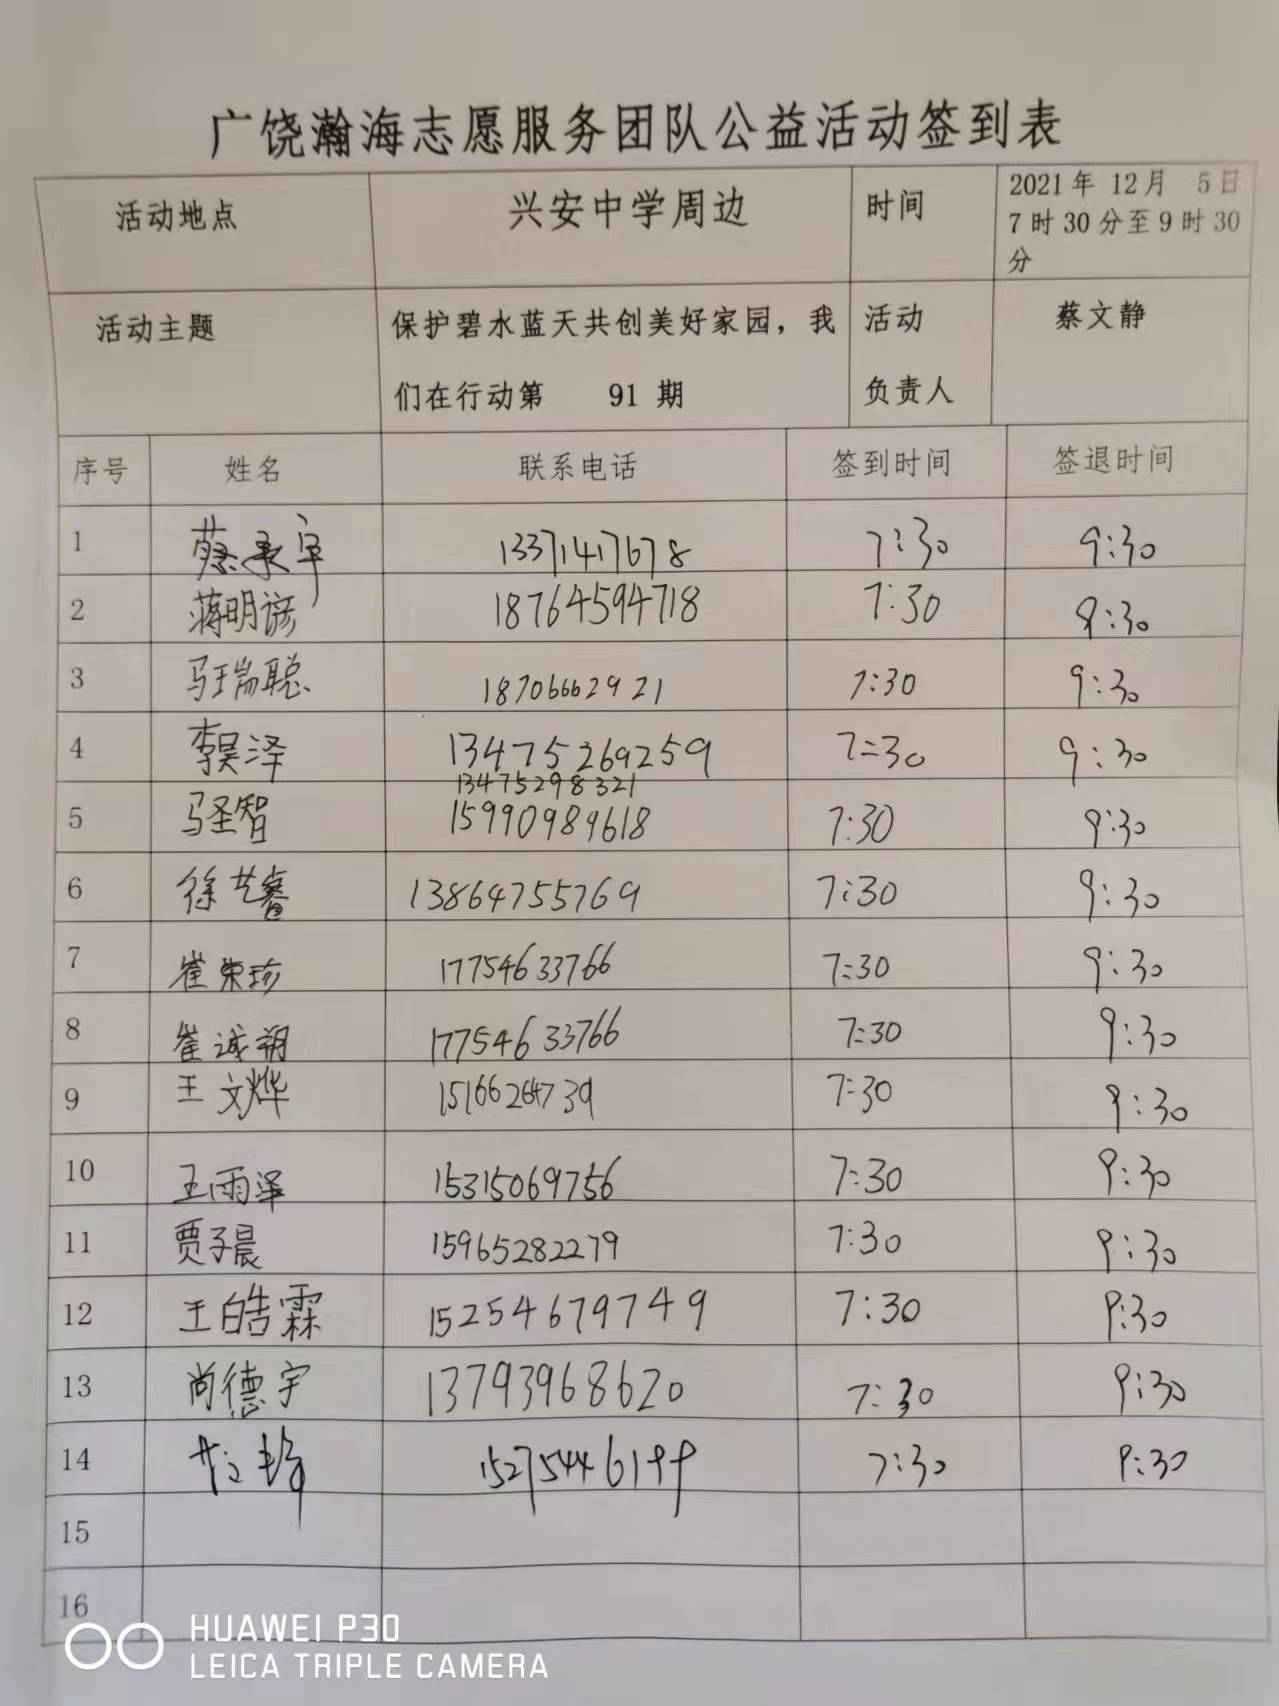 广饶瀚海志愿服务团队公益活动签到表
活动地点 兴安中学周边 时间 2021年 12月 5日
7时30分至9时30
分
活动主题 保护碧水蓝天共创美好家园，我 活动 蔡文静
们在行动第 91 期 负责人
序号 姓名 联系电话 签到时间 签退时间
1 蔡承宇 13371417678 7:30 9:30
2 蒋明谚 18764594718 7:30 9:30
3 马瑞聪 18706662921 7:30 9:30
4 李昊泽 13475269259 7:30 9:30
13475298321
5 马圣智 15990989618 7:30 9:30
6 徐艺睿 13864755769 7:30 9:30
7 崔荣珍 17754633766 7:30 9:30
8 崔诚朔 17754633766 7:30 9:30
9 王文烨 7:30 9:30
10 王雨泽 15315069756 7:30 9:30
11 贾子晨 15965282279 7:30 9:30
12 王皓霖 15254679749 7:30 9:30
13 尚德宇 13793968620 7:30 9:30
14 7:30 9:30
15
16
HUAWEI P30
LEICA TRIPLE CAMERA